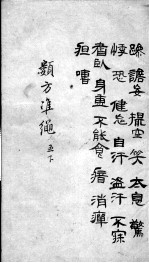 躁 譫妄 撮空 笑 太息 驚
悸 恐 健忘 自汗 盜汗 不寐
嗜臥 身重 不能食 瘖 消癉
疸 嘈
類方準繩 五下